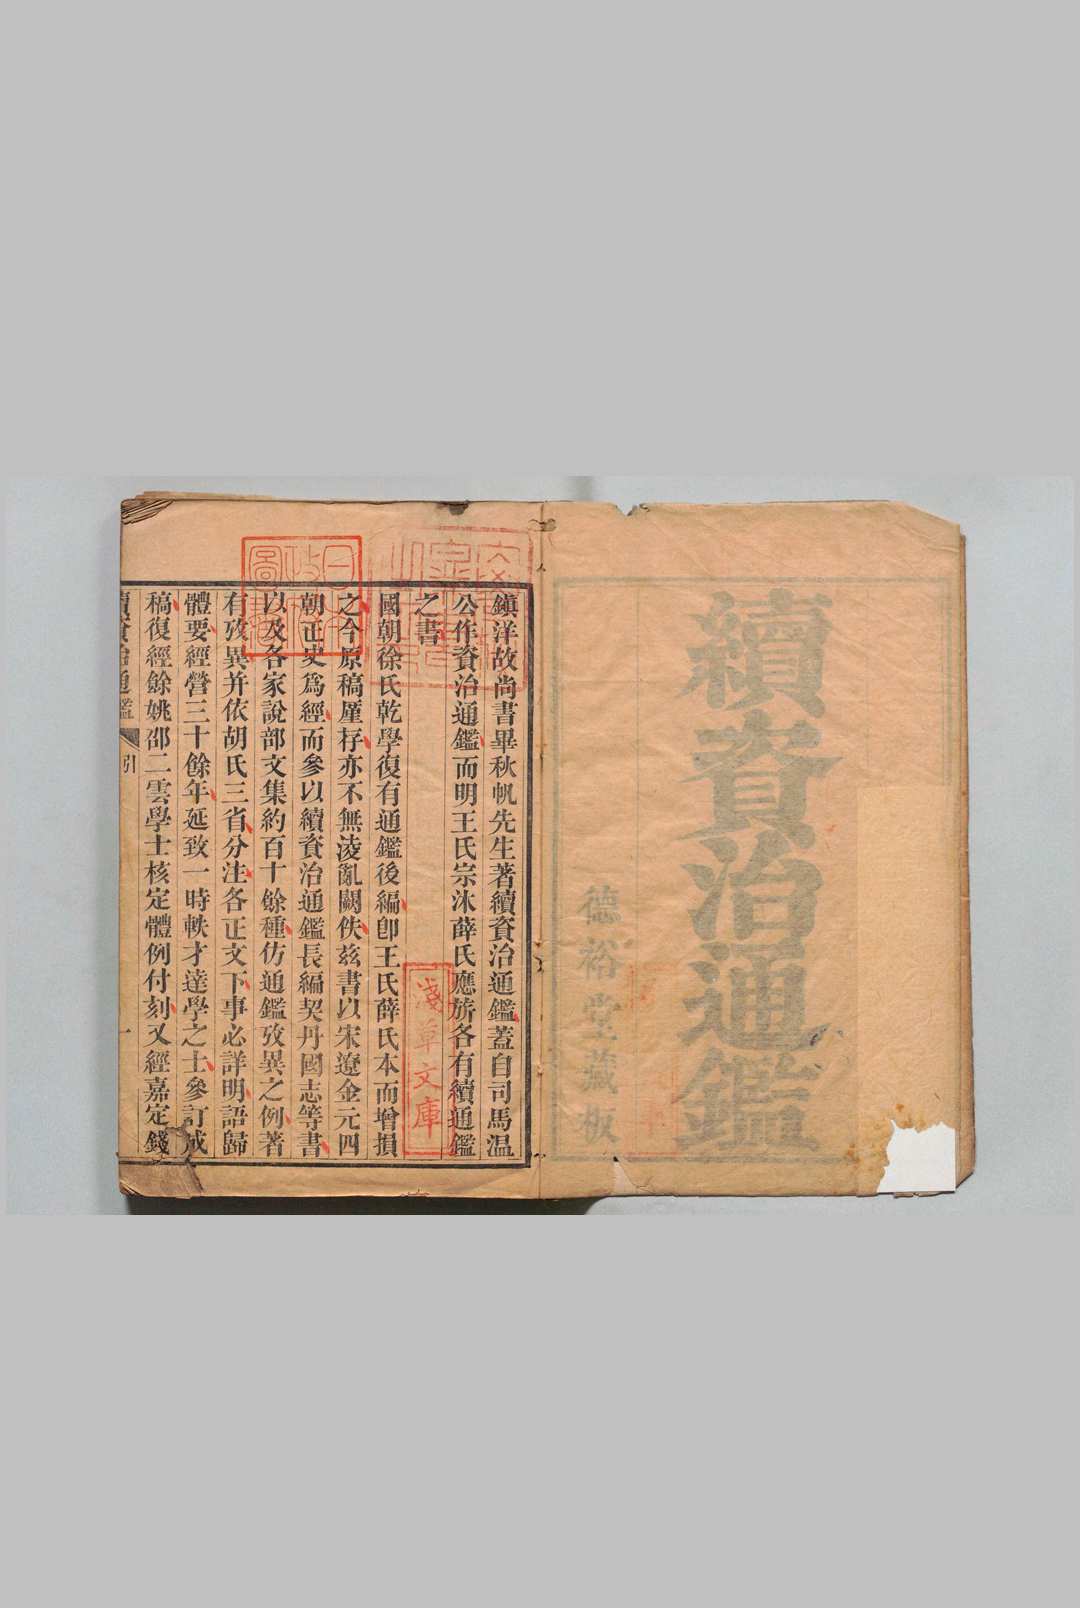 續資治通鑑
德裕堂藏板
鎮洋故尚書畢秋帆先生著續資治通鑑蓋自司馬温
公作資治通鑑而明王氏宗沐薛氏應旂各有續通鑑
之書
國朝徐氏乾學復有通鑑後編卽王氏薛氏本而增損
之今原稿厪存亦不無淩亂闕佚玆書以宋遼金元四
朝正史爲經而參以續資治通鑑長編契丹國志等書
以及各家說部文集約百十餘種仿通鑑攷異之例著
有攷異并依胡氏三省分注各正文下事必詳明語歸
體要經營三十餘年延致一時軼才達學之士參訂成
稿復經餘姚邵二雲學士核定體例付刻又經嘉定錢
續資治通鑑
引
一
淺草文庫